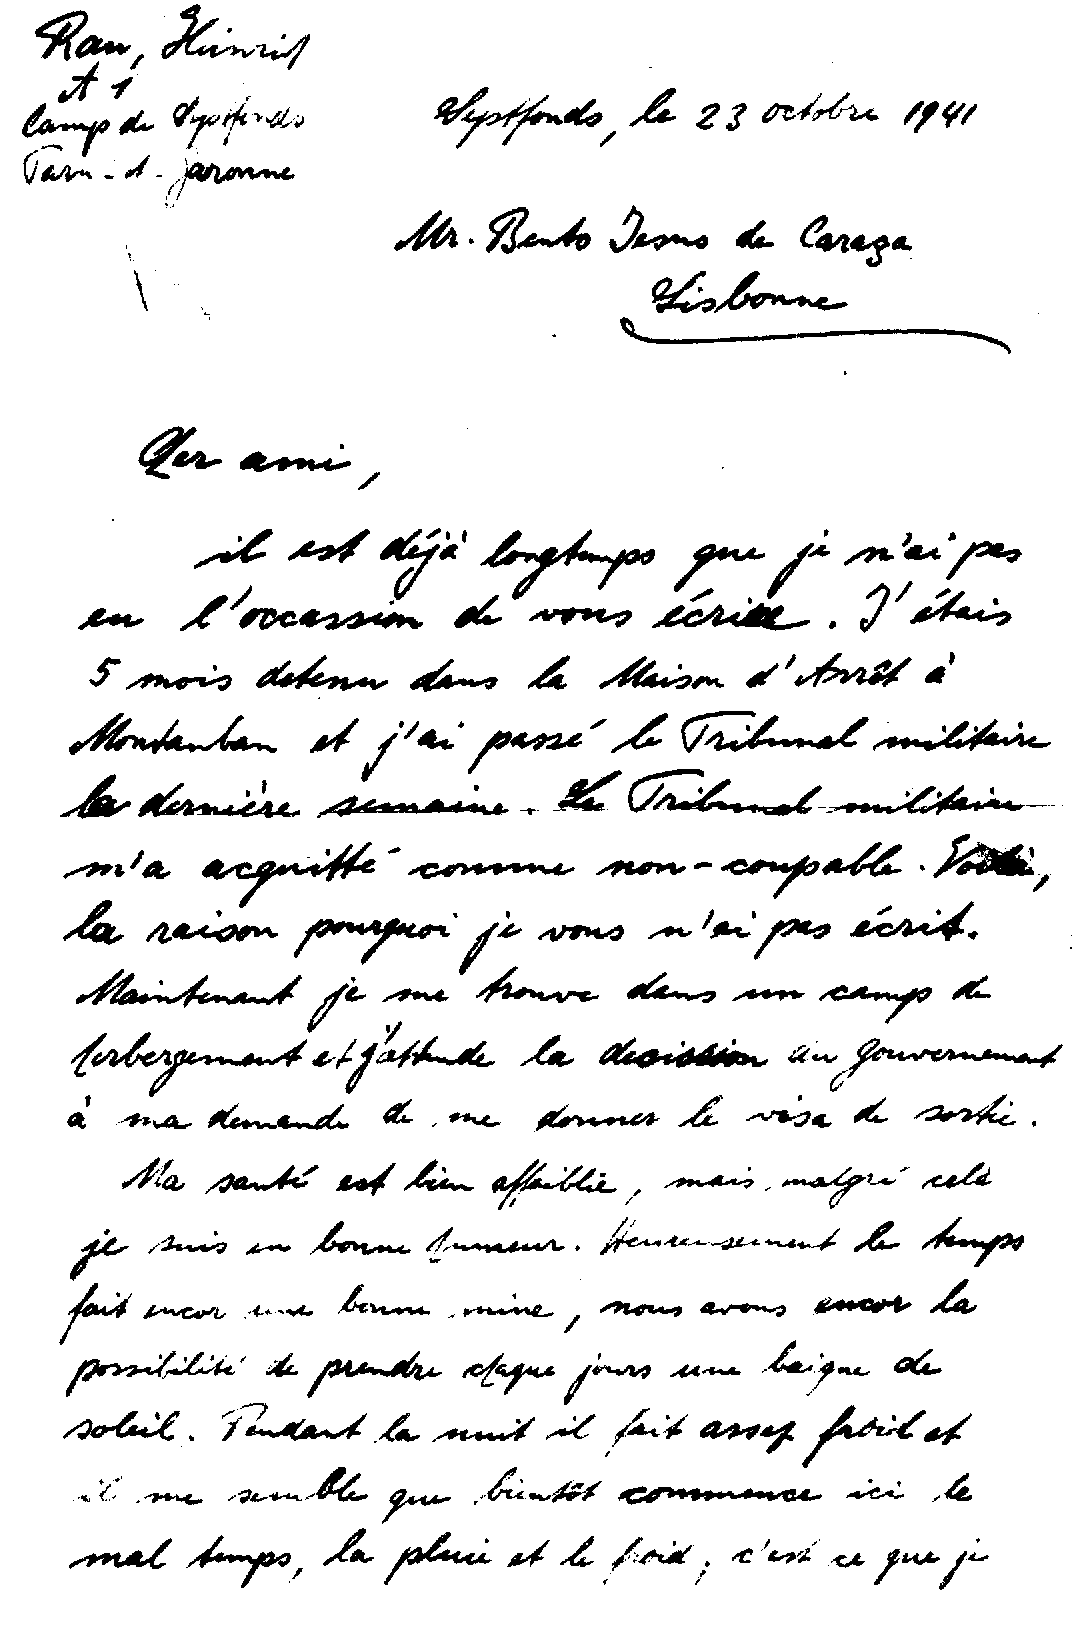 Rau, Heinrich
A 1
Camp de Septfonds
Tarn-et-Garonne
Septfonds, le 23 octobre 1941
Mr. Bento Jesus de Caraza
Lisbonne
Cher ami,
il est déjà longtemps que je n'ai pas
eu l'occassion de vous écrire. J'étais
5 mois detenu dans la Maison d'Arrêt à
Montauban et j'ai passé le Tribunal militaire
la dernière semaine. Le Tribunal militaire
m'a acquitté comme non-coupable. Voilà,
la raison pourquoi je vous n'ai pas écrit.
Maintenant je me trouve dans un camp de
herbergement et j'attende la decission du gouvernement
à ma demande de me donner le visa de sortie.
Ma santé est bien affaiblie, mais malgré cela
je suis en bonne humeur. Heureusement le temps
fait encor une bonne mine, nous avons encor la
possibilité de prendre chaque jours une baigne de
soleil. Pendant la nuit il fait assez froid et
il me semble que bientôt commence ici le
mal temps, la pluie et le froid, c'est ce que je